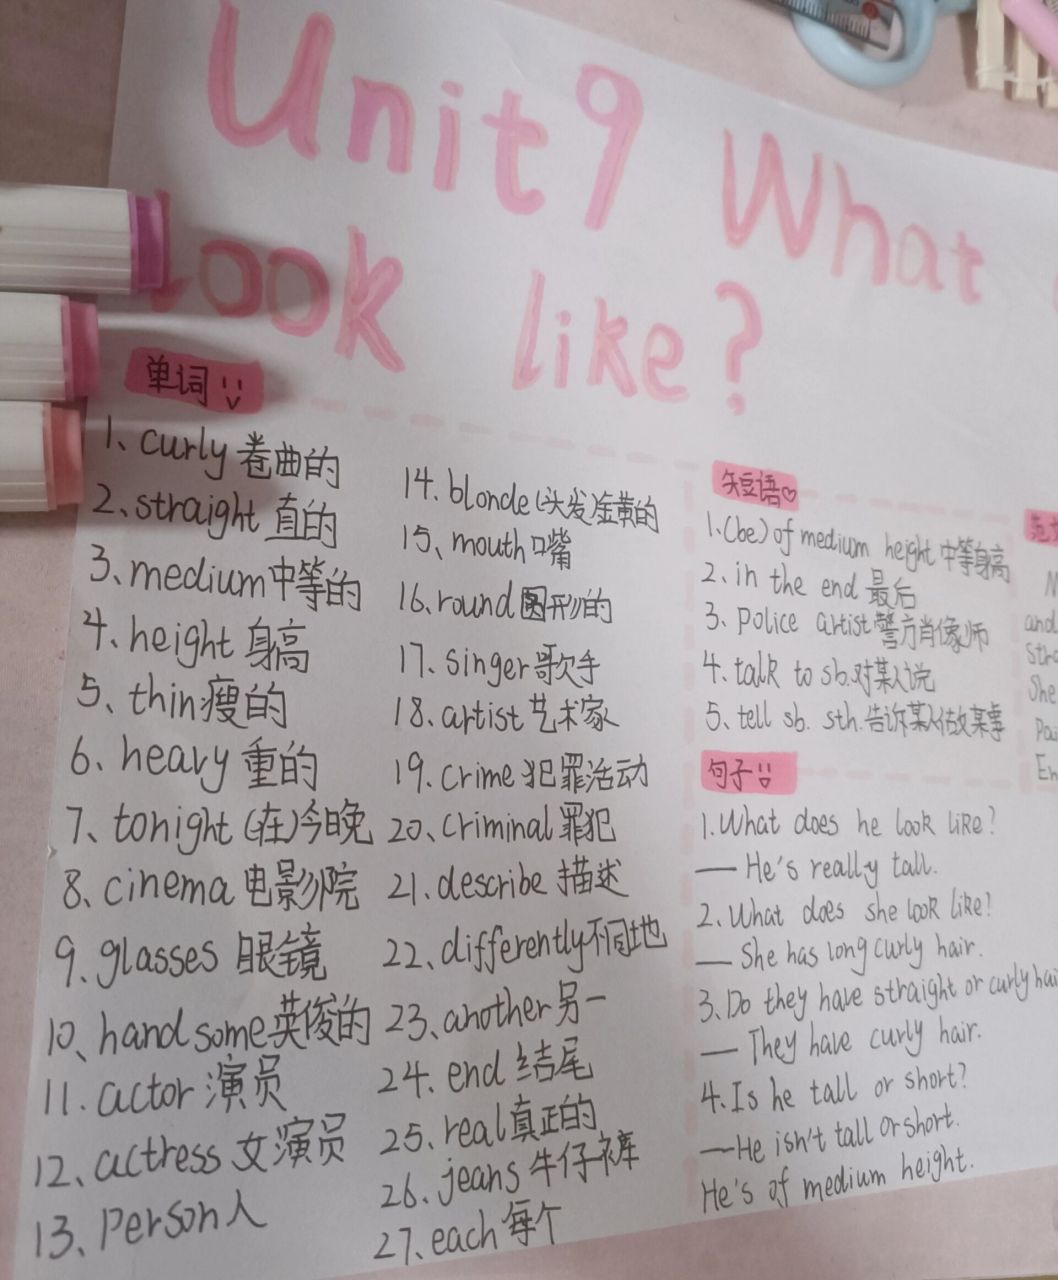 Unit9 What
look like?
单词
1、curly 卷曲的
2、straight 直的
3、medium 中等的
4、height 身高
5、thin 瘦的
6、heavy 重的
7、tonight (在)今晚
8、cinema 电影院
9、glasses 眼镜
10、handsome 英俊的
11. actor 演员
12、actress 女演员
13、person 人
14. blonde (头发)金黄的
15、mouth 嘴
16、round 圆形的
17、singer 歌手
18、artist 艺术家
19、crime 犯罪活动
20、criminal 罪犯
21、describe 描述
22、differently 不同地
23、another 另一
24. end 结尾
25、real 真正的
26、jeans 牛仔裤
27、each 每个
短语
1.(be) of medium height 中等身高
2、in the end 最后
3、police artist 警方肖像师
4、talk to sb.对某人说
5、tell sb. sth.告诉某人做某事
句子
1.What does he look like?
— He's really tall.
2. What does she look like?
— She has long curly hair.
3. Do they have straight or curly hai
— They have curly hair.
4. Is he tall or short?
— He isn't tall or short.
He's of medium height.
and
She